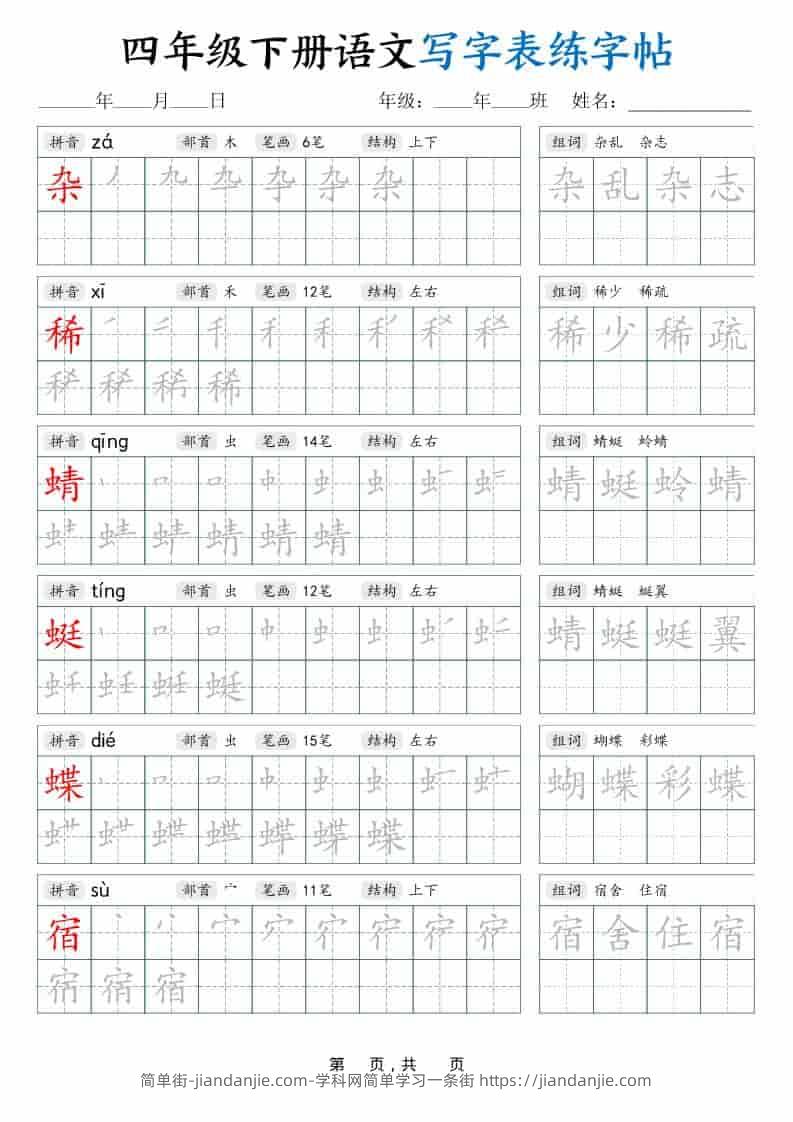 四年级下册语文写字表练字帖
______年____月____日 年级：____年____班 姓名：____________
拼音 zá 部首 木 笔画 6笔 结构 上下 组词 杂乱 杂志
杂 杂 杂乱杂志
拼音 xī 部首 禾 笔画 12笔 结构 左右 组词 稀少 稀疏
稀 稀少稀疏
稀
拼音 qīng 部首 虫 笔画 14笔 结构 左右 组词 蜻蜓 蛉蜻
蜻 蜻蜓蛉蜻
蜻
拼音 tíng 部首 虫 笔画 12笔 结构 左右 组词 蜻蜓 蜓翼
蜓 蜻蜓蜓翼
蜓
拼音 dié 部首 虫 笔画 15笔 结构 左右 组词 蝴蝶 彩蝶
蝶 蝴蝶彩蝶
蝶
拼音 sù 部首 宀 笔画 11笔 结构 上下 组词 宿舍 住宿
宿 宿舍住宿
宿
第 页，共 页
简单街-jiandanjie.com-学科网简单学习一条街 https://jiandanjie.com